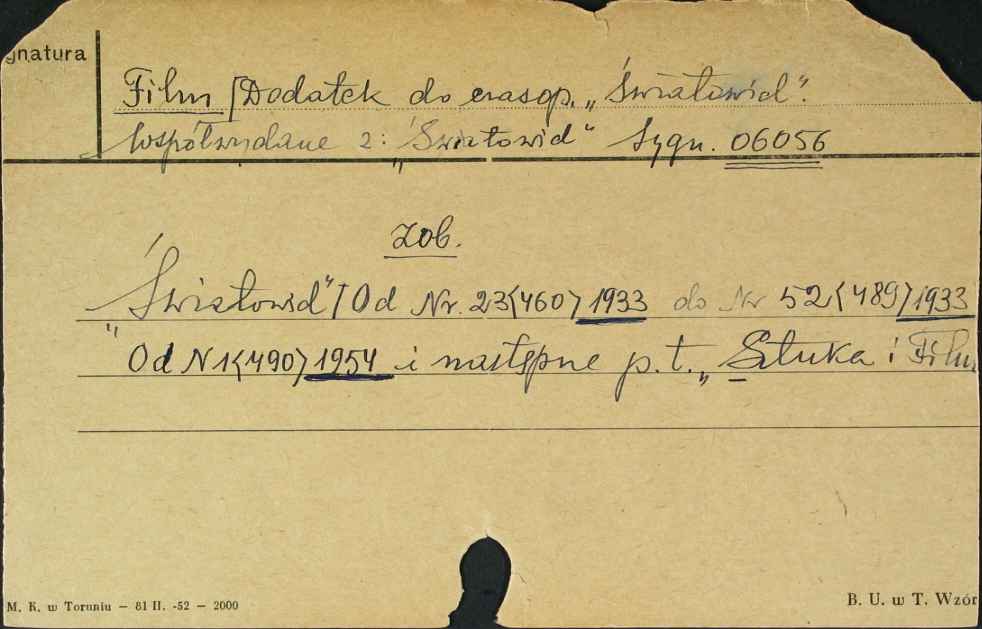 gnatura
Film [Dodatek do czasop. „Światowid".
Współwydane z: „Światowid" Sygn. 06056
Zob.
„Światowid" / Od Nr. 23<460> 1933 do Nr 52<489> 1933
Od N 1<490> 1954 i następne p. t. „Sztuka i Film
M. K. w Toruniu — 81 II. -52 — 2000
B. U. w T. Wzór